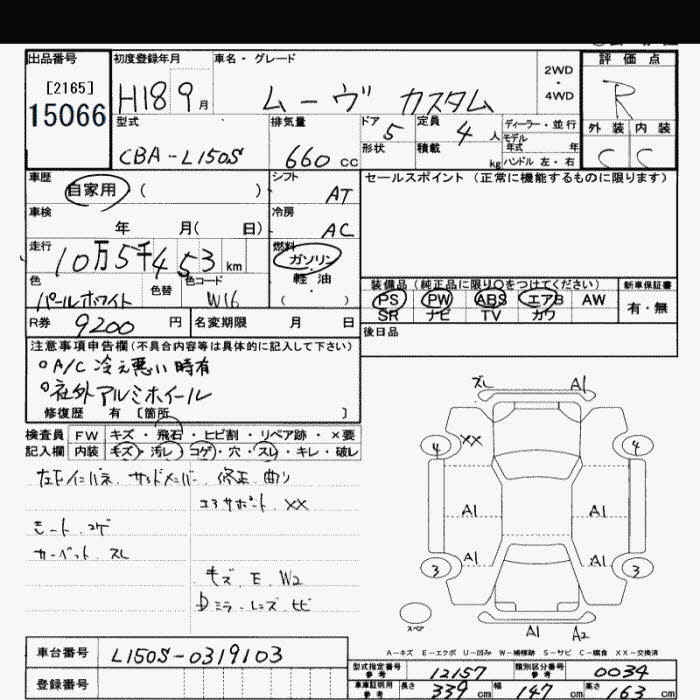 出品番号 初度登録年月 車名・グレード 評価点
[2165]
15066
H18 9月 ムーヴ カスタム 2WD・4WD R
型式 排気量 ドア 5 定員 4人 ディーラー・並行 外装 内装
CBA-L150S 660cc 形状 積載 kg モデル年式 年 ハンドル 左・右 C C
車歴 自家用 ( ) シフト AT セールスポイント (正常に機能するものに限ります)
車検 年 月( 日) 冷房 AC
走行 10万5千453km 燃料 ガソリン・軽油 ( )
色 パールホワイト 色替 色コード W16
装備品 (純正品に限り○をつけてください) 新車保証書
PS PW ABS エアB AW 有・無
SR ナビ TV カワ
R券 9200円 名変期限 月 日 後日品
注意事項申告欄(不具合内容等は具体的に記入して下さい)
○A/C 冷え悪い時有
○社外アルミホイール
修復歴 有 [箇所 ]
検査員 FW キズ・飛石・ヒビ割・リペア跡・×要
記入欄 内装 キズ・汚レ・コゲ・穴・スレ・キレ・破レ
修正 曲り
コアサポート XX
シート コゲ
カーペット スレ
キズ E W2
Dミラーレンズ ヒビ
ズレ A1
4 XX 4
A1 A1
A1 A1
3 3
スペア
A1 A2
A-キズ E-エクボ U-凹み W-補修跡 S-サビ C-腐食 XX-交換済
車台番号 L150S-0319103
登録番号
型式指定番号 参考 12157 類別区分番号 参考 0034
車庫証明用 参考 長さ 339cm 幅 147cm 高さ 163cm